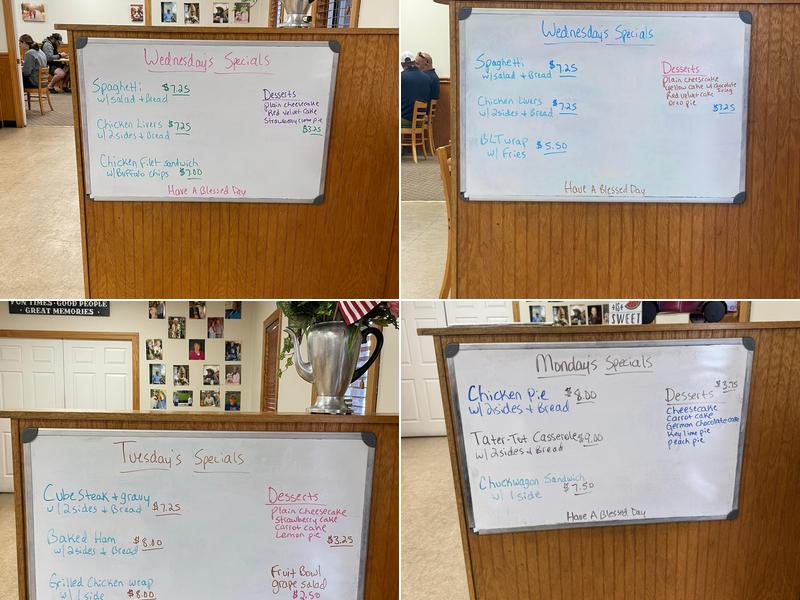 Wednesday's Specials
Spaghetti $7.25
w/salad + Bread
Chicken Livers $7.25
w/2sides + Bread
Chicken Filet Sandwich
w/Buffalo chips $7.00
Desserts
Plain cheesecake
Red Velvet Cake
Strawberry cream pie
$3.25
Have A Blessed Day
Wednesday's Specials
Spaghetti $7.25
w/salad + Bread
Chicken Livers $7.25
w/2sides + Bread
BLT wrap $5.50
w/ Fries
Desserts
Plain cheesecake
yellow cake w/ chocolate
icing
Red velvet cake
Oreo pie
$3.25
Have A Blessed Day
FUN TIMES · GOOD PEOPLE
· GREAT MEMORIES ·
Tuesday's Specials
Cube steak + gravy
w/2sides + Bread $7.25
Baked Ham $8.00
w/2sides + Bread
Grilled Chicken wrap
w/ 1 side $8.00
Desserts
Plain cheesecake
Strawberry cake
Carrot cake
Lemon pie $3.25
Fruit Bowl
grape salad
$2.50
SWEET
Monday's Specials
Chicken Pie $8.00
w/2sides + Bread
Tater-Tot Casserole $9.00
w/2sides + Bread
Chuckwagon Sandwich
w/ 1 side $7.50
$3.75
Desserts
Cheesecake
Carrot cake
German Chocolate cake
Key lime pie
peach pie
Have A Blessed Day